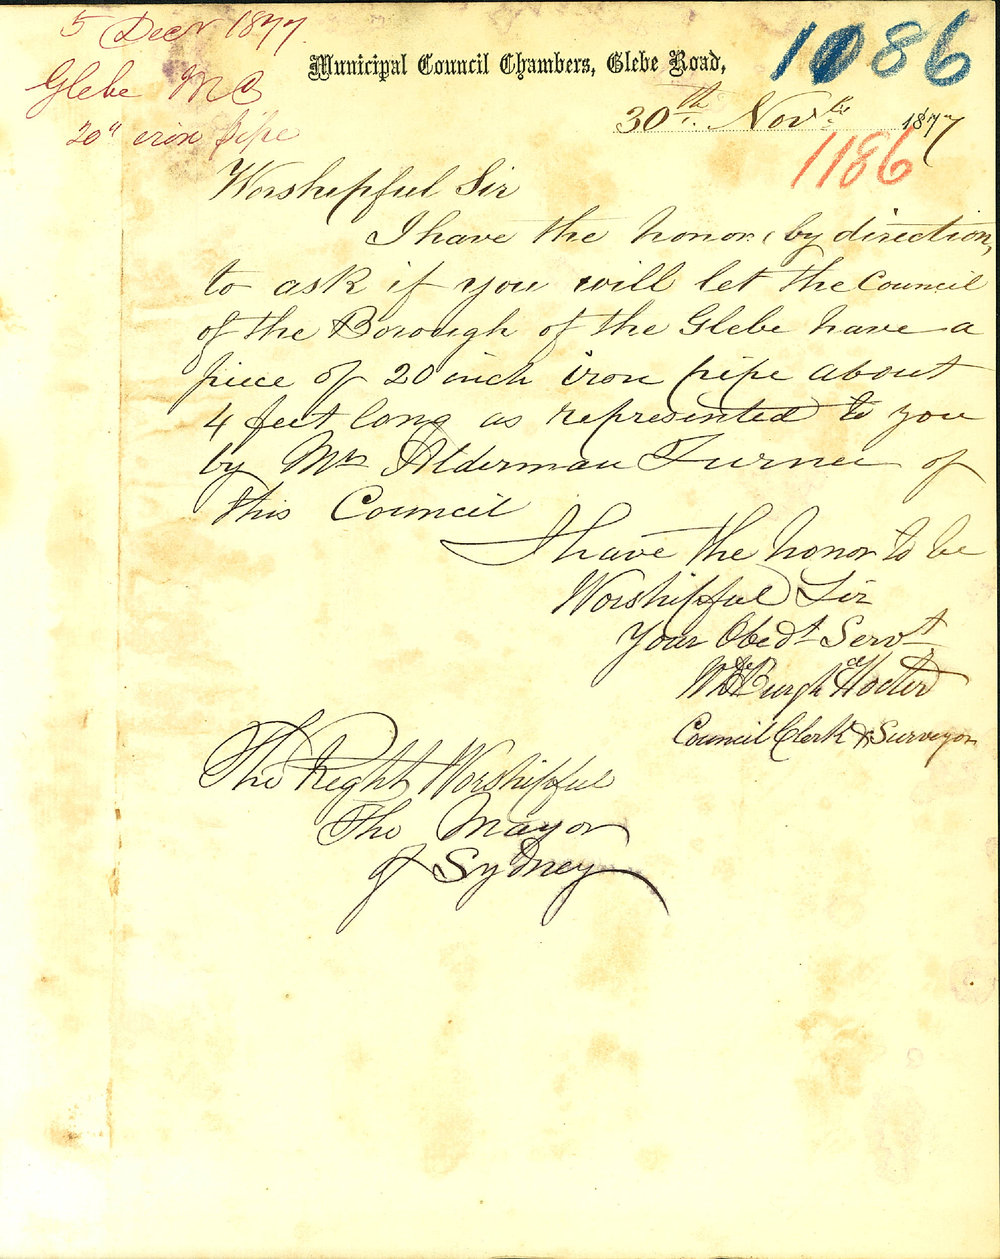 5 Decr 1877
Glebe M C
20" iron pipe
1086
Municipal Council Chambers, Glebe Road,
30th Novbr 1877
1186
Worshipful Sir
I have the honor, by direction,
to ask if you will let the Council
of the Borough of the Glebe have a
piece of 20 inch iron pipe about
4 feet long as represented to you
by Mr Alderman Turner of
this Council
I have the honor to be
Worshipful Sir
Your Obedt Servt
Council Clerk & Surveyor
The Right Worshipful
The Mayor
of Sydney